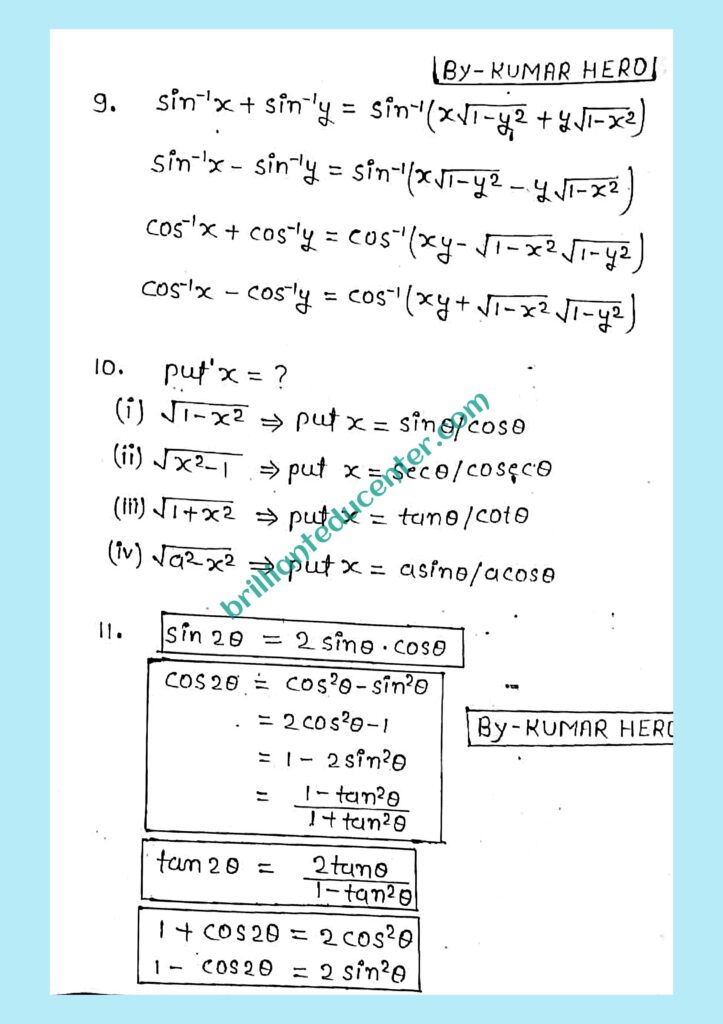 By-KUMAR HERO
9. sin⁻¹x + sin⁻¹y = sin⁻¹(x√1-y² + y√1-x²)
sin⁻¹x - sin⁻¹y = sin⁻¹(x√1-y² - y√1-x²)
cos⁻¹x + cos⁻¹y = cos⁻¹(xy - √1-x² √1-y²)
cos⁻¹x - cos⁻¹y = cos⁻¹(xy + √1-x² √1-y²)
10. put x = ?
(i) √1-x² ⇒ put x = sinθ/cosθ
(ii) √x²-1 ⇒ put x = secθ/cosecθ
(iii) √1+x² ⇒ put x = tanθ/cotθ
(iv) √a²-x² ⇒ put x = asinθ/acosθ
brillianteducenter.com
11. sin 2θ = 2 sinθ · cosθ
cos2θ = cos²θ - sin²θ
= 2cos²θ - 1
By-KUMAR HERO
= 1 - 2sin²θ
= 1 - tan²θ
1 + tan²θ
tan 2θ = 2tanθ
1 - tan²θ
1 + cos2θ = 2cos²θ
1 - cos2θ = 2 sin²θ